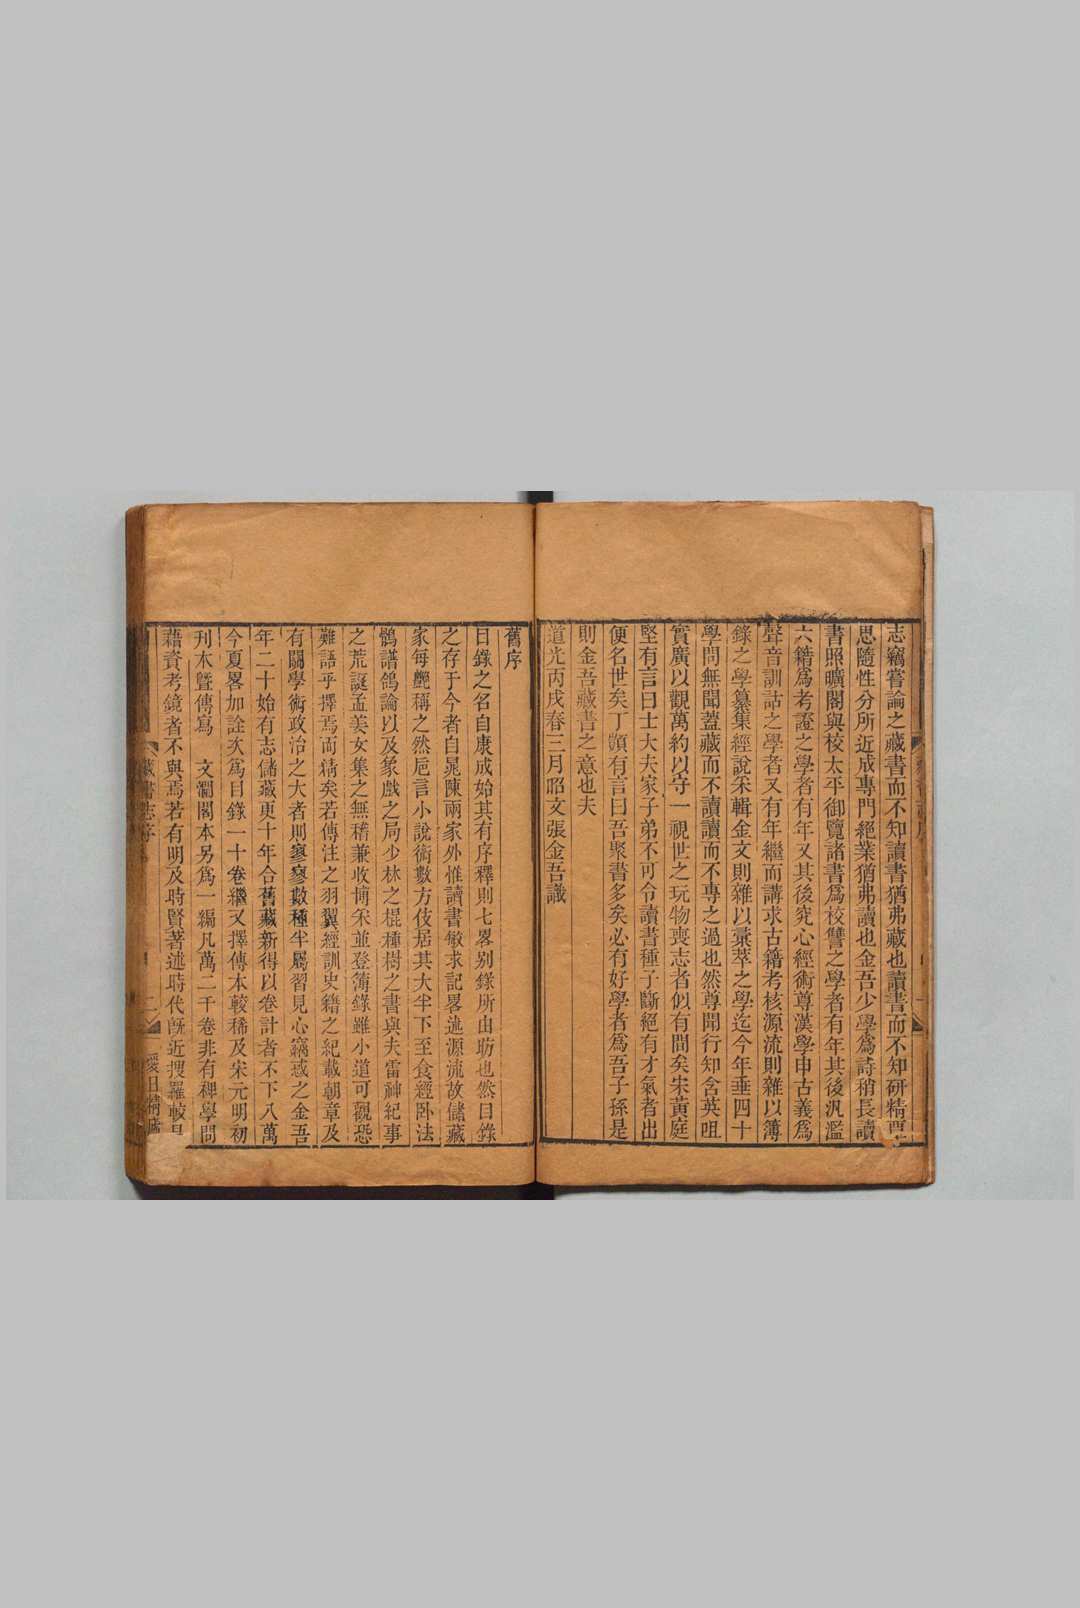 志竊嘗論之藏書而不知讀書猶弗藏也讀書而不知研精覃
思隨性分所近成專門絕業猶弗讀也金吾少學爲詩稍長讀
書照曠閣與校太平御覽諸書爲校讐之學者有年其後汎濫
六籍爲考證之學者有年又其後究心經術尊漢學申古義爲
聲音訓詁之學者又有年繼而講求古籍考核源流則雜以簿
錄之學纂集經說采輯金文則雜以彙萃之學迄今年垂四十
學問無聞蓋藏而不讀讀而不專之過也然尊聞行知含英咀
實廣以觀萬約以守一視世之玩物喪志者似有間矣朱黃庭
堅有言曰士大夫家子弟不可令讀書種子斷絕有才氣者出
便名世矣丁顗有言曰吾聚書多矣必有好學者爲吾子孫是
則金吾藏書之意也夫
道光丙戌春三月昭文張金吾識
舊序
目錄之名自康成始其有序釋則七畧別錄所由昉也然目錄
之存于今者自晁陳兩家外惟讀書敏求記畧述源流故儲藏
家每豔稱之然卮言小說術數方伎居其大半下至食經卧法
鶴譜鴿論以及象戲之局少林之棍種樹之書與夫雷神紀事
之荒誕孟姜女集之無稽兼收博采並登簿錄雖小道可觀恐
難語乎擇焉而精矣若傳注之羽翼經訓史籍之紀載朝章及
有關學術政治之大者則寥寥數種半屬習見心竊惑之金吾
年二十始有志儲藏更十年合舊藏新得以卷計者不下八萬
今夏畧加詮次爲目錄一十卷繼又擇傳本較稀及宋元明初
刋本曁傳寫 文瀾閣本另爲一編凡萬二千卷非有稗學問
藉資考鏡者不與焉若有明及時賢著述時代旣近搜羅較易
藏書志序 二 愛日精廬